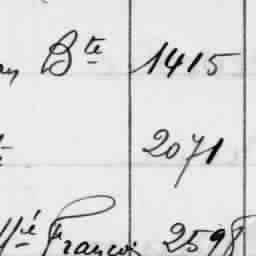 Bte 1415
2071
François 2598